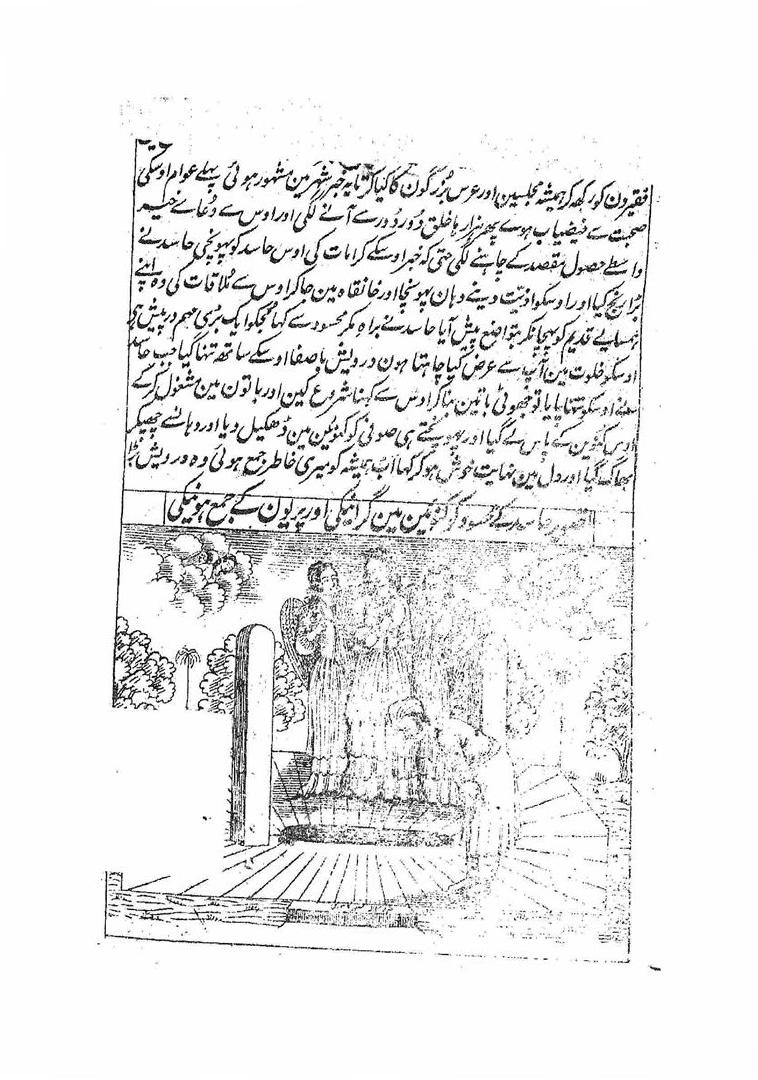 فقیرون کو رکھکر ہمیشہ مجلسین اور عرس بزرگون کا کیا کرتا یہ خبر شہر مین مشہور ہوئی پہلے عوام اوسکی
صحبت سے فیضیاب ہوے پھر ہزارہا خلق دور دور سے آنے لگی اور اوس سے دُعاے خیر
واسطے حصول مقصد کے چاہنے لگی حتی کہ خبر اوسکے کرامات کی اوس حاسد کو پہونچی حاسد نے
بڑا رنج کیا اور اوسکو اذیت دینے وہان پہونچا اور خانقاہ مین جاکر اوس سے ملاقات کی وہ اپنے
ہمسایے قدیم کو پہچانکر بتواضع پیش آیا حاسد نے براہ مکر محسود سے کہا مجکو ایک بڑی مہم درپیش ہی
اوسکو خلوت مین آپ سے عرض کیا چاہتا ہون درویش باصفا اوسکے ساتھ تنہا گیا جب حاسد
نے اوسکو تنہا پایا تو جھوٹی باتین بناکر اوس سے کہنا شروع کین اور باتون مین مشغول کرکے
اوس کنوین کے پاس لے گیا اور پہونچتے ہی صوفی کو کنوئین مین ڈھکیل دیا اور وہانسے چھپکر
بھاگ گیا اور دل مین نہایت خوش ہوکر کہا اب ہمیشہ کو میری خاطر جمع ہوئی وہ درویش بڑا
تصویر حاسد کے محسود کو کنوئین مین گرانیکی اور پریون کے جمع ہونیکی